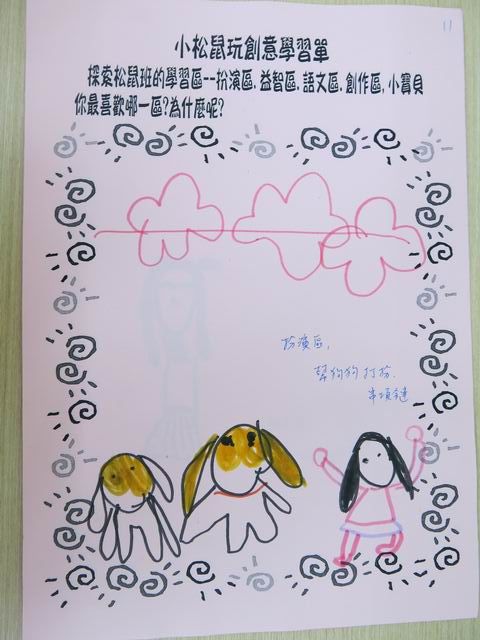 11
小松鼠玩創意學習單
探索松鼠班的學習區--扮演區.益智區.語文區.創作區,小寶貝
你最喜歡哪一區?為什麼呢?
扮演區,
幫狗狗打扮.
串項鏈